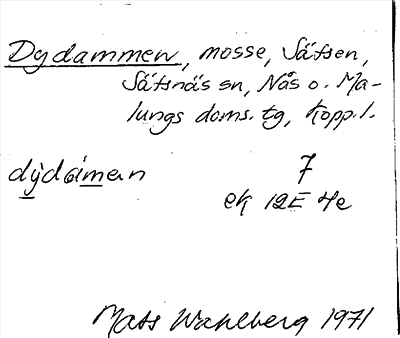 Dydammen, mosse, Sätsen,
Sätsnäs sn, Nås o. Ma-
lungs doms. tg, Kopp.l.
dỳdámen 7
ek 12E 4e
Mats Wahlberg 1971